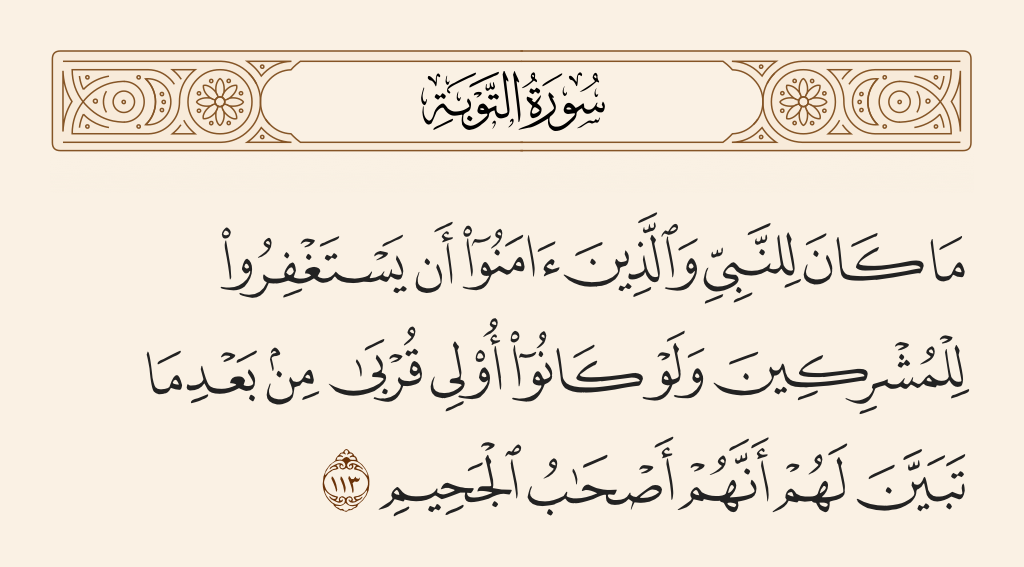 سُورَةُ التَّوْبَةِ
مَا كَانَ لِلنَّبِيِّ وَٱلَّذِينَ ءَامَنُوٓاْ أَن يَسْتَغْفِرُواْ
لِلْمُشْرِكِينَ وَلَوْ كَانُوٓاْ أُوْلِي قُرْبَىٰ مِنۢ بَعْدِ مَا
تَبَيَّنَ لَهُمْ أَنَّهُمْ أَصْحَٰبُ ٱلْجَحِيمِ ١١٣